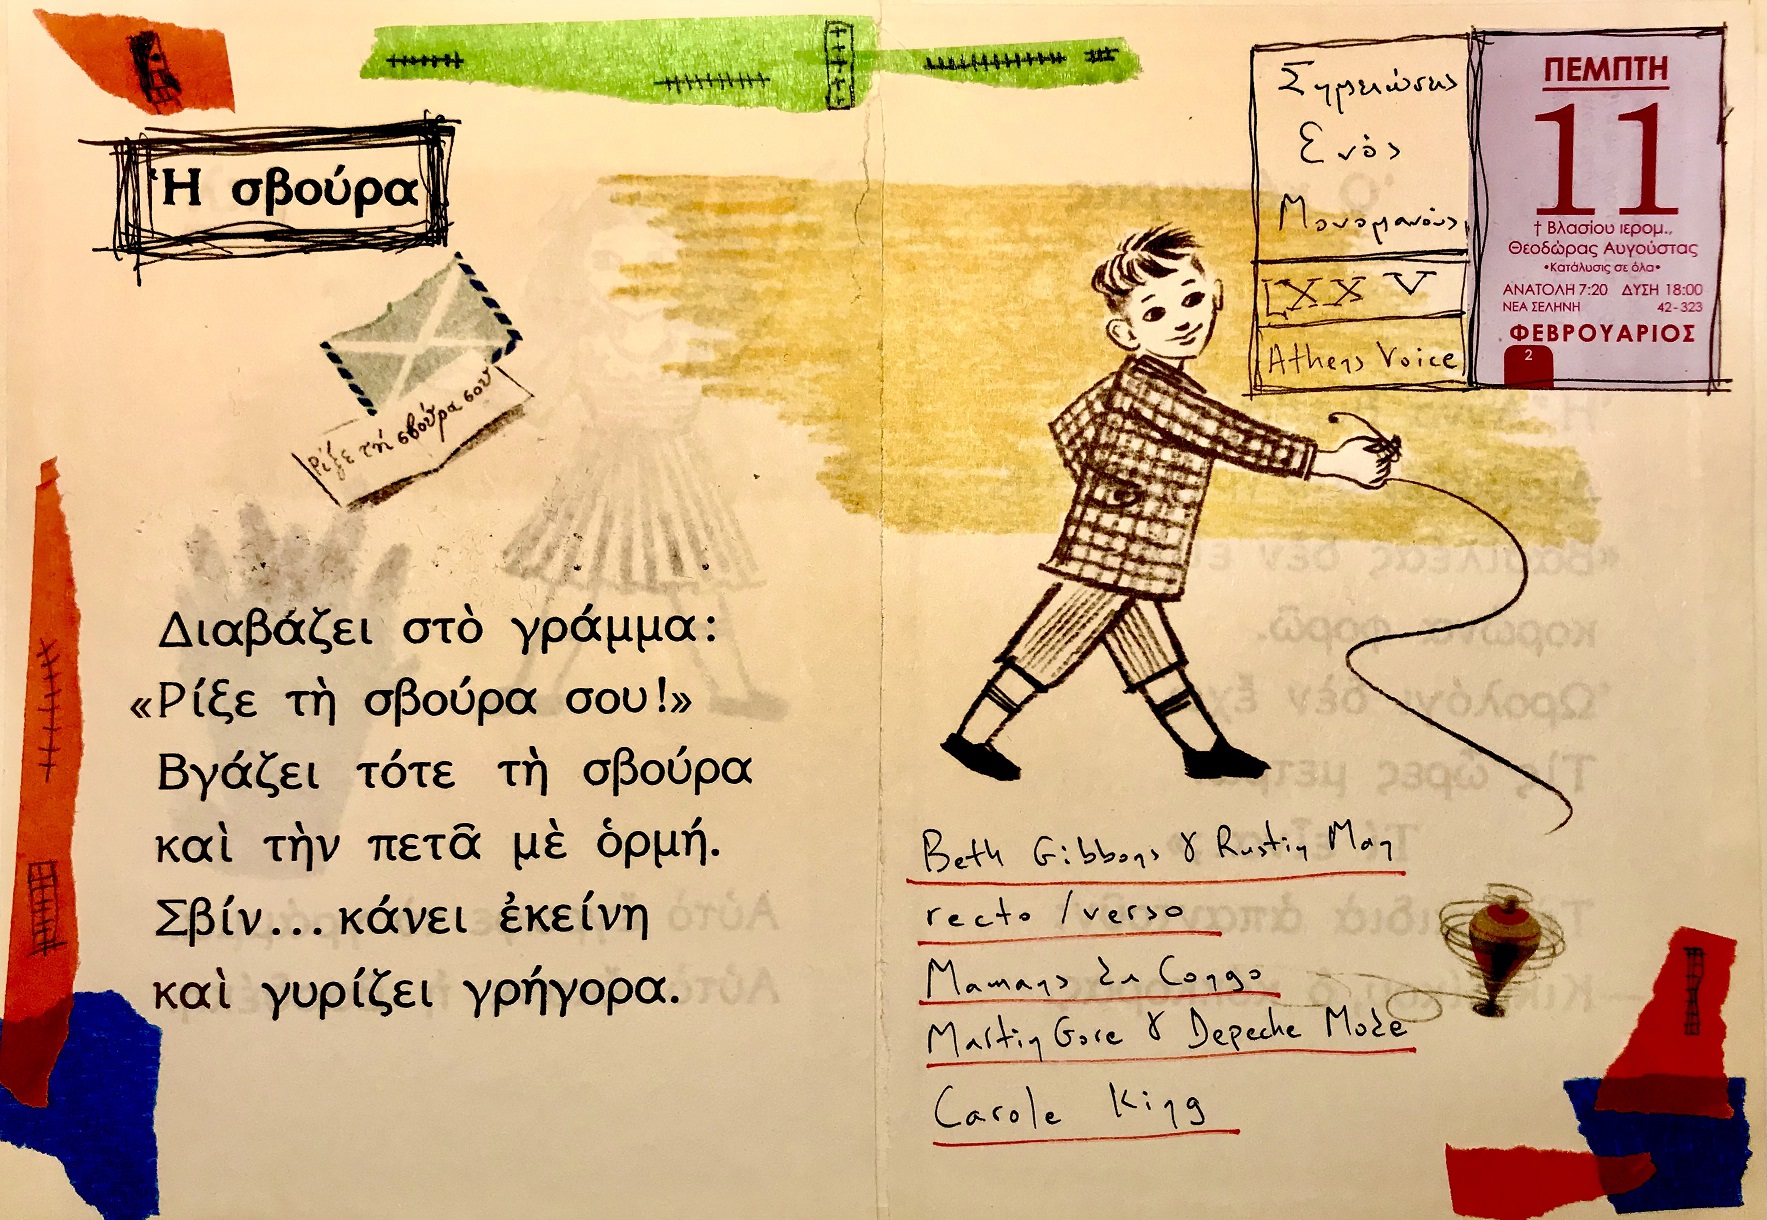 Ἡ σβούρα
Ρίξε τή σβούρα σου
Διαβάζει στὸ γράμμα:
«Ρίξε τὴ σβούρα σου!»
Βγάζει τότε τὴ σβούρα
καὶ τὴν πετᾶ μὲ ὁρμή.
Σβίν... κάνει ἐκείνη
καὶ γυρίζει γρήγορα.
Σημειώσεις
Ενός
Μονομανούς
LXXV
Athens Voice
ΠΕΜΠΤΗ
11
† Βλασίου ιερομ.,
Θεοδώρας Αυγούστας
•Κατάλυσις σε όλα•
ΑΝΑΤΟΛΗ 7:20 ΔΥΣΗ 18:00
ΝΕΑ ΣΕΛΗΝΗ 42-323
ΦΕΒΡΟΥΑΡΙΟΣ
2
Beth Gibbons & Rustin Man
recto / verso
Mamans du Congo
Martin Gore & Depeche Mode
Carole King